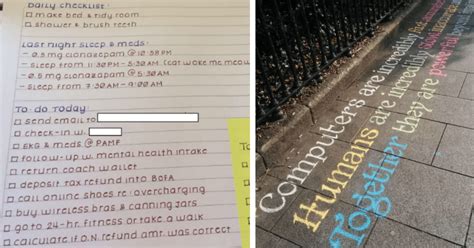 Daily checklist:
make bed & tidy room
shower & brush teeth
Last night sleep & meds:
- 0.5 mg clonazepam @ 10:58 PM
- sleep from 11:30PM - 5:30AM (cat woke me
- 0.5 mg clonazepam @ 5:30AM
- sleep from 7:30AM - 9:00AM
To-do today:
send email to
check-in w.
EKG & meds @ PAMF
follow-up w. mental health intake
return coach wallet
deposit tax refund into BofA
call online shoes re: overcharging
buy wireless bras & canning jars
go to 24-hr. fitness or take a walk
calculate if O.N. refund amt. was correct
To
Computers are incredibly
Humans are incredibly
Together they are powerful